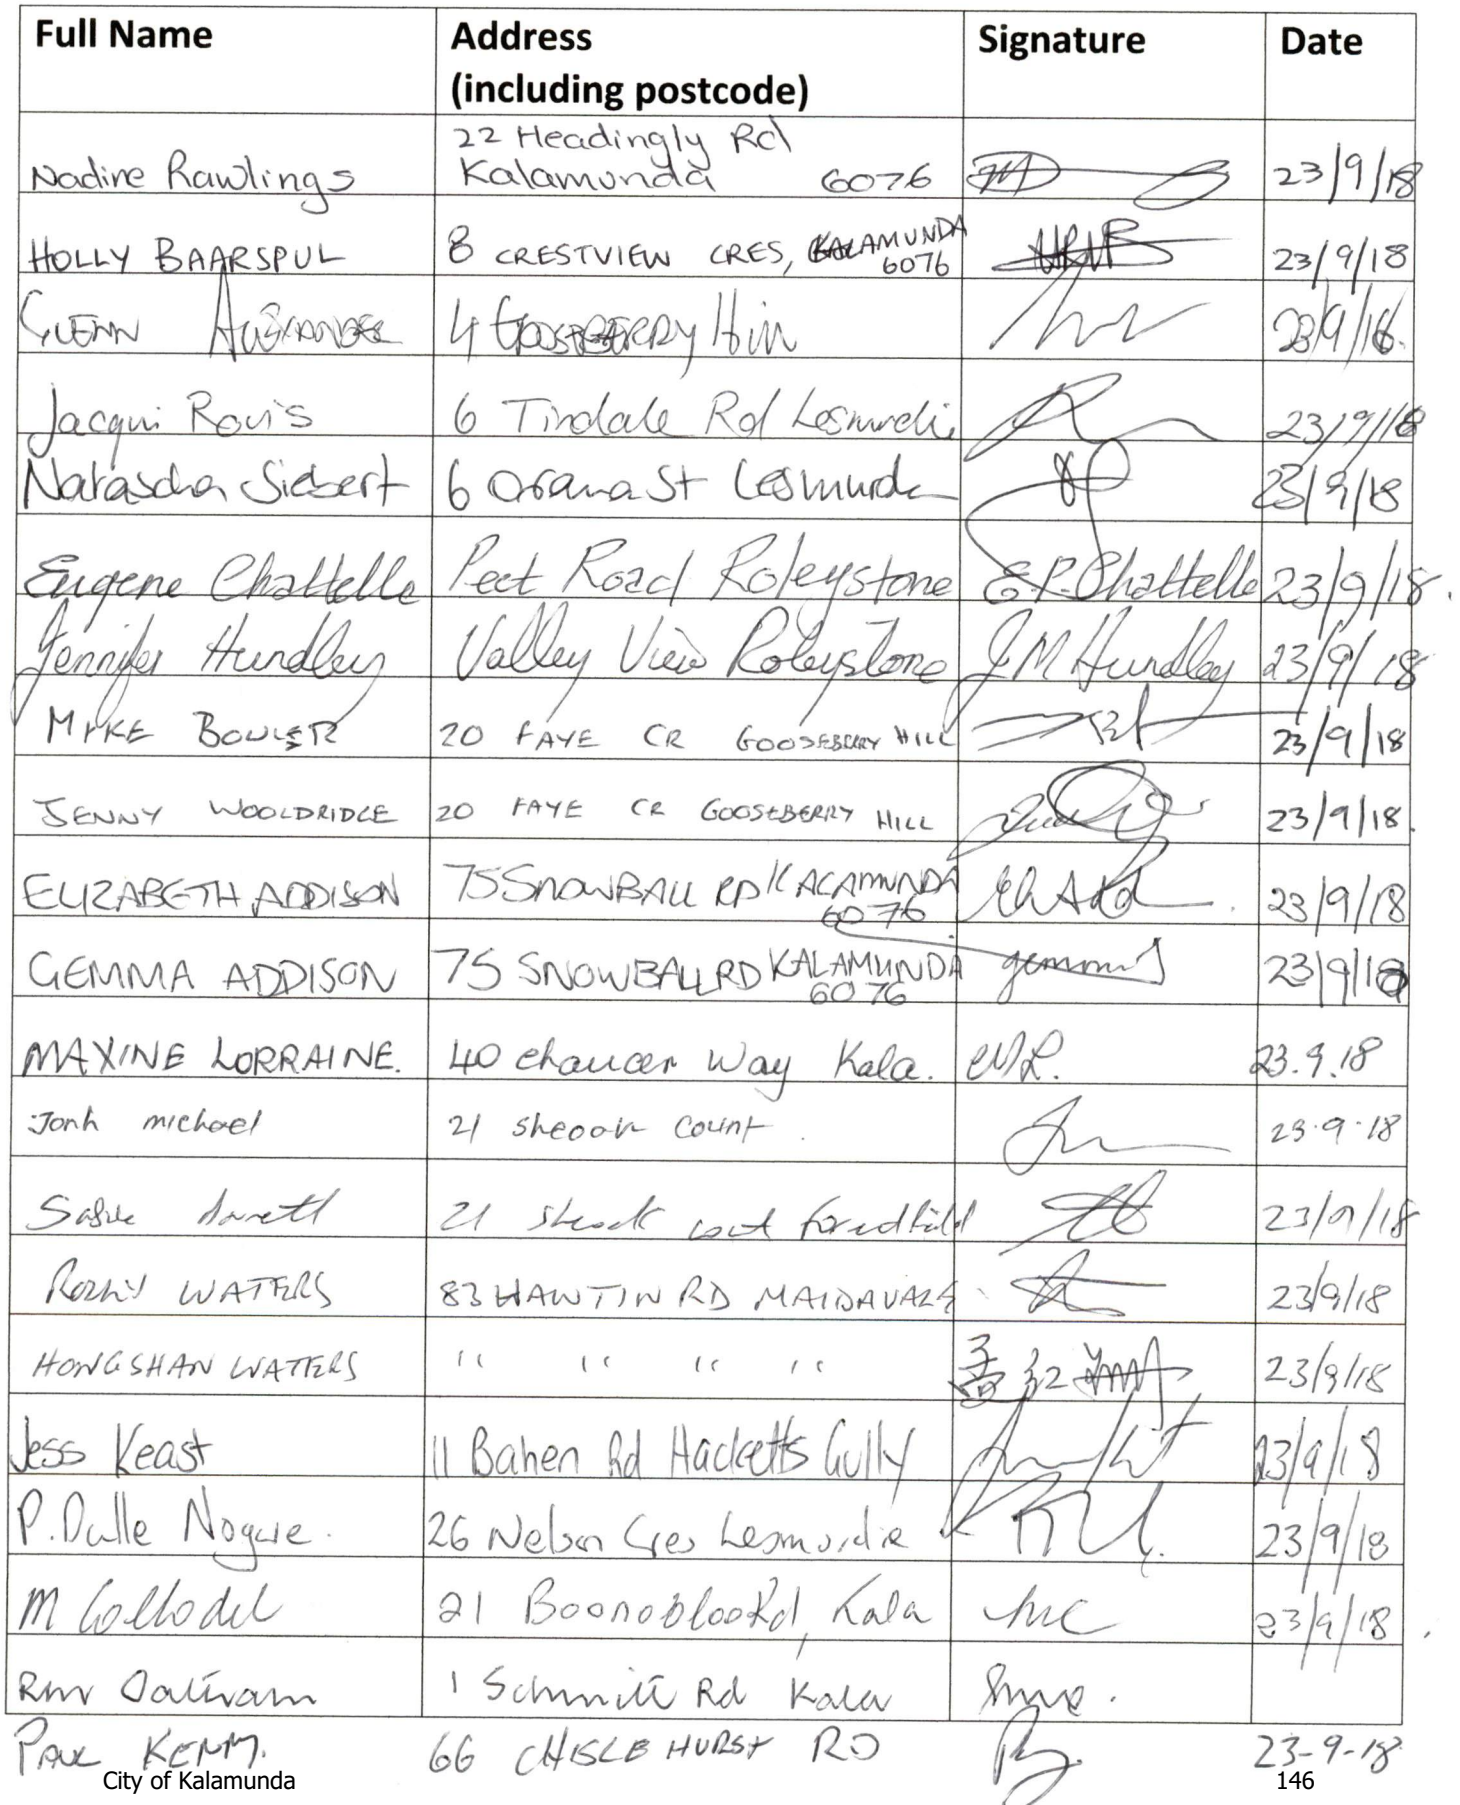 Full Name Address Signature Date
(including postcode)
22 Headingly Rd
Nadine Rawlings Kalamunda 6076 23/9/18
HOLLY BAARSPUL 8 CRESTVIEW CRES, KALAMUNDA 23/9/18
6076
GLENN ALEXANDER 4 GOOSEBERRY Hill
Jacqui Rovis 6 Tindale Rd Lesmurdie 23/9/18
Natascha Siebert 6 Orana St Lesmurdie 23/9/18
Eugene Chattelle Peet Road Roleystone E.P. Chattelle 23/9/18.
Jennifer Hundley Valley View Roleystone J M Hundley 23/9/18
MYKE BOWLER 20 FAYE CR GOOSEBERRY HILL 23/9/18
JENNY WOOLDRIDGE 20 FAYE CR GOOSEBERRY HILL 23/9/18.
ELIZABETH ADDISON 75 SNOWBALL RD KALAMUNDA 23/9/18
6076
GEMMA ADDISON 75 SNOWBALL RD KALAMUNDA gemma 23/9/18
6076
MAXINE LORRAINE. 40 Chaucer Way Kala. ML. 23.9.18
Jonh michael 21 sheoak count. 23.9.18
21 sheoak forestfield 23/9/18
WATERS 83 HAWTIN RD MAIDAVALE 23/9/18
HONGSHAN WATERS " " " " 孟红 23/9/18
Jess Keast 11 Bahen Rd Hacketts Gully 23/9/18
P. Dalle Nogare. 26 Nelson Cres Lesmurdie 23/9/18
M Collodel 21 Boonooloo Rd, Kala MC 23/9/18
1 Schmitt Rd Kala
PAUL KENNY. 66 CHISLEHURST RD 23-9-18
City of Kalamunda 146